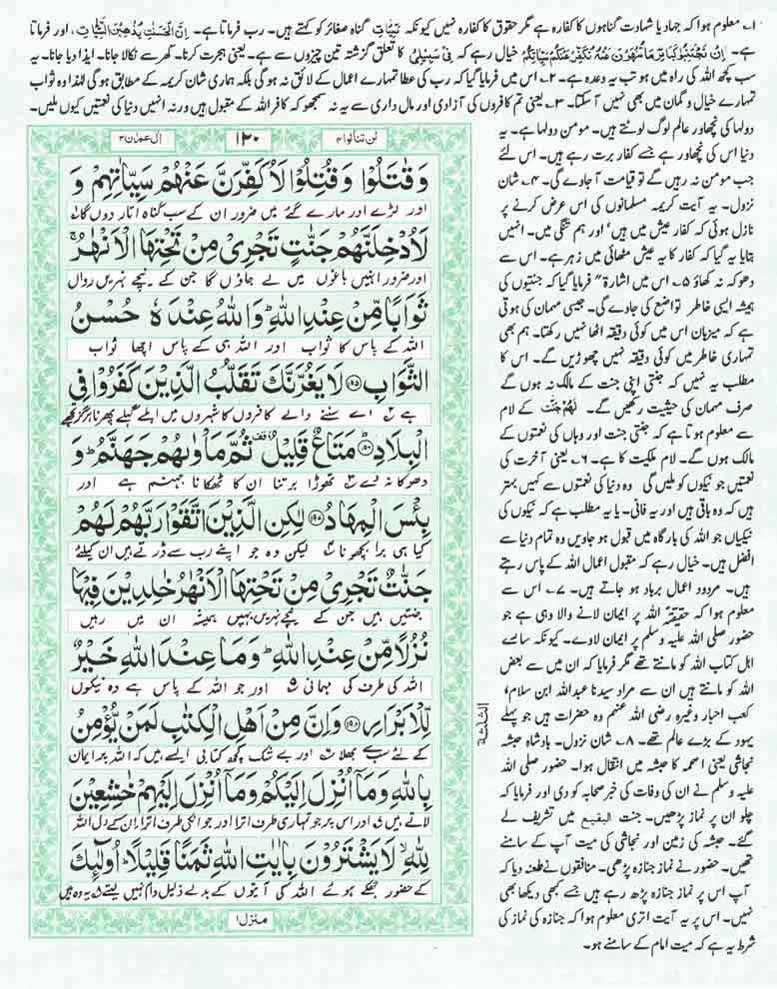 ۱۔ معلوم ہوا کہ جہاد یا شہادت گناہوں کا کفارہ ہے مگر حقوق کا کفارہ نہیں کیونکہ سَیِّاٰتِ گناہ صغائر کو کہتے ہیں۔ رب فرماتا ہے۔ اِنَّ الْحَسَنٰتِ یُذْهِبْنَ السَّیِّاٰتِ، اور فرماتا
ہے۔ اِنْ تَجْتَنِبُوْا كَبَآىٕرَ مَا تُنْهَوْنَ عَنْهُ نُكَفِّرْ عَنْكُمْ سَیِّاٰتِكُمْ خیال رہے کہ فِیْ سَبِیْلِیْ کا تعلق گزشتہ تین چیزوں سے ہے۔ یعنی ہجرت کرنا۔ گھر سے نکالا جانا۔ ایذا دیا جانا۔ یہ
سب کچھ اللہ کی راہ میں ہو تب یہ وعدہ ہے۔ ۲۔ اس میں فرمایا گیا کہ رب کی عطا تمہارے اعمال کے لائق نہ ہو گی بلکہ ہماری شان کریمہ کے مطابق ہو گی لہٰذا وہ ثواب
تمہارے خیال و گمان میں بھی نہیں آ سکتا۔ ۳۔ یعنی تم کافروں کی آزادی اور مال داری سے یہ نہ سمجھو کہ کافر اللہ کے مقبول ہیں ورنہ انہیں دنیا کی نعمتیں کیوں ملیں۔
دولہا کی نچھاور عالم لوگ لوٹتے ہیں۔ مومن دولہا ہے۔ یہ
دنیا اس کی نچھاور ہے جسے کفار برت رہے ہیں۔ اس لئے
جب مومن نہ رہیں گے تو قیامت آ جاوے گی۔ ۴۔ شان
نزول۔ یہ آیت کریمہ مسلمانوں کی اس عرض کرنے پر
نازل ہوئی کہ کفار عیش میں ہیں، اور ہم تنگی میں۔ انہیں
بتایا یہ گیا کہ کفار کا یہ عیش مٹھائی میں زہر ہے۔ اس سے
دھوکہ نہ کھاؤ ۵۔ اس میں اشارۃً فرمایا گیا کہ جنتیوں کی
ہمیشہ ایسی خاطر تواضع کی جاوے گی۔ جیسی مہمان کی ہوتی
ہے کہ میزبان اس میں کوئی دقیقہ اٹھا نہیں رکھتا۔ ہم بھی
تمہاری خاطر میں کوئی دقیقہ نہیں چھوڑیں گے۔ اس کا
مطلب یہ نہیں کہ جنتی اپنی جنت کے مالک نہ ہوں گے
صرف مہمان کی حیثیت رکھیں گے۔ لَهُمْ جَنّٰتٌ کے لام
سے معلوم ہوتا ہے کہ جنتی جنت اور وہاں کی نعمتوں کے
مالک ہوں گے۔ لام ملکیت کا ہے۔ ۶۔ یعنی آخرت کی
نعمتیں جو نیکوں کو ملیں گی وہ دنیا کی نعمتوں سے کہیں بہتر
ہیں کہ وہ باقی ہیں اور یہ فانی۔ یا یہ مطلب ہے کہ نیکوں کی
نیکیاں جو اللہ کی بارگاہ میں قبول ہو جاویں وہ تمام دنیا سے
افضل ہیں۔ خیال رہے کہ مقبول اعمال اللہ کے پاس رہتے
ہیں۔ مردود اعمال برباد ہو جاتے ہیں۔ ۷۔ اس سے
معلوم ہوا کہ حقیقۃً اللہ پر ایمان لانے والا وہی ہے جو
حضور صلی اللہ علیہ وسلم پر ایمان لاوے۔ کیونکہ سارے
اہل کتاب اللہ کو مانتے تھے مگر فرمایا کہ ان میں سے بعض
اللہ کو مانتے ہیں ان سے مراد سیدنا عبداللہ ابن سلام،
کعب احبار وغیرہ رضی اللہ عنہم وہ حضرات ہیں جو پہلے
یہود کے بڑے عالم تھے۔ ۸۔ شان نزول۔ بادشاہ حبشہ
نجاشی یعنی اصحمہ کا حبشہ میں انتقال ہوا۔ حضور صلی اللہ
علیہ وسلم نے ان کی وفات کی خبر صحابہ کو دی اور فرمایا کہ
چلو ان پر نماز پڑھیں۔ جنت البقیع میں تشریف لے
گئے۔ حبشہ کی زمین اور نجاشی کی میت آپ کے سامنے
تھیں۔ حضور نے نماز جنازہ پڑھی۔ منافقوں نے طعنہ دیا کہ
آپ اس پر نماز جنازہ پڑھ رہے ہیں جسے کبھی دیکھا بھی
نہیں۔ اس پر یہ آیت اتری معلوم ہوا کہ جنازہ کی نماز کی
شرط یہ ہے کہ میت امام کے سامنے ہو۔
لن تنالوا ۴
۱۲۰
اٰل عمران ۳
وَ قٰتَلُوْا وَ قُتِلُوْا لَاُكَفِّرَنَّ عَنْهُمْ سَیِّاٰتِهِمْ وَ
اور لڑے اور مارے گئے میں ضرور ان کے سب گناہ اتار دوں گا ۱
لَاُدْخِلَنَّهُمْ جَنّٰتٍ تَجْرِیْ مِنْ تَحْتِهَا الْاَنْهٰرُۚ
اور ضرور انہیں باغوں میں لے جاؤں گا جن کے نیچے نہریں رواں
ثَوَابًا مِّنْ عِنْدِ اللّٰهِؕ وَ اللّٰهُ عِنْدَهٗ حُسْنُ
اللہ کے پاس کا ثواب اور اللہ ہی کے پاس اچھا ثواب
الثَّوَابِ ﴿۱۹۵﴾ لَا یَغُرَّنَّكَ تَقَلُّبُ الَّذِیْنَ كَفَرُوْا فِی
ہے ۲ اے سننے والے کافروں کا شہروں میں اہلے گہلے پھرنا ہرگز تجھے
الْبِلَادِؕ ﴿۱۹۶﴾ مَتَاعٌ قَلِیْلٌ۫ ثُمَّ مَاْوٰىهُمْ جَهَنَّمُؕ وَ
دھوکا نہ دے ۳ تھوڑا برتنا ان کا ٹھکانا جہنم ہے اور
بِئْسَ الْمِهَادُ ﴿۱۹۷﴾ لٰكِنِ الَّذِیْنَ اتَّقَوْا رَبَّهُمْ لَهُمْ
کیا ہی برا بچھونا ۴ لیکن وہ جو اپنے رب سے ڈرتے ہیں ان کیلئے
جَنّٰتٌ تَجْرِیْ مِنْ تَحْتِهَا الْاَنْهٰرُ خٰلِدِیْنَ فِیْهَا
جنتیں ہیں جن کے نیچے نہریں بہیں ہمیشہ ان میں رہیں
نُزُلًا مِّنْ عِنْدِ اللّٰهِؕ وَ مَا عِنْدَ اللّٰهِ خَیْرٌ
اللہ کی طرف کی مہمانی ۵ اور جو اللہ کے پاس ہے وہ نیکوں
لِّلْاَبْرَارِ ﴿۱۹۸﴾ وَ اِنَّ مِنْ اَهْلِ الْكِتٰبِ لَمَنْ یُّؤْمِنُ
کے لئے سب سے بھلا ۶ اور بے شک کچھ کتابی ایسے ہیں کہ اللہ پر ایمان
بِاللّٰهِ وَ مَاۤ اُنْزِلَ اِلَیْكُمْ وَ مَاۤ اُنْزِلَ اِلَیْهِمْ خٰشِعِیْنَ
لاتے ہیں ۷ اور اس پر جو تمہاری طرف اترا اور جو انکی طرف اترا ان کے دل اللہ
لِلّٰهِۙ لَا یَشْتَرُوْنَ بِاٰیٰتِ اللّٰهِ ثَمَنًا قَلِیْلًاؕ اُولٰٓىٕكَ
کے حضور جھکے ہوئے اللہ کی آیتوں کے بدلے ذلیل دام نہیں لیتے ۸ یہ وہ ہیں
منزل ۱
الثلثة